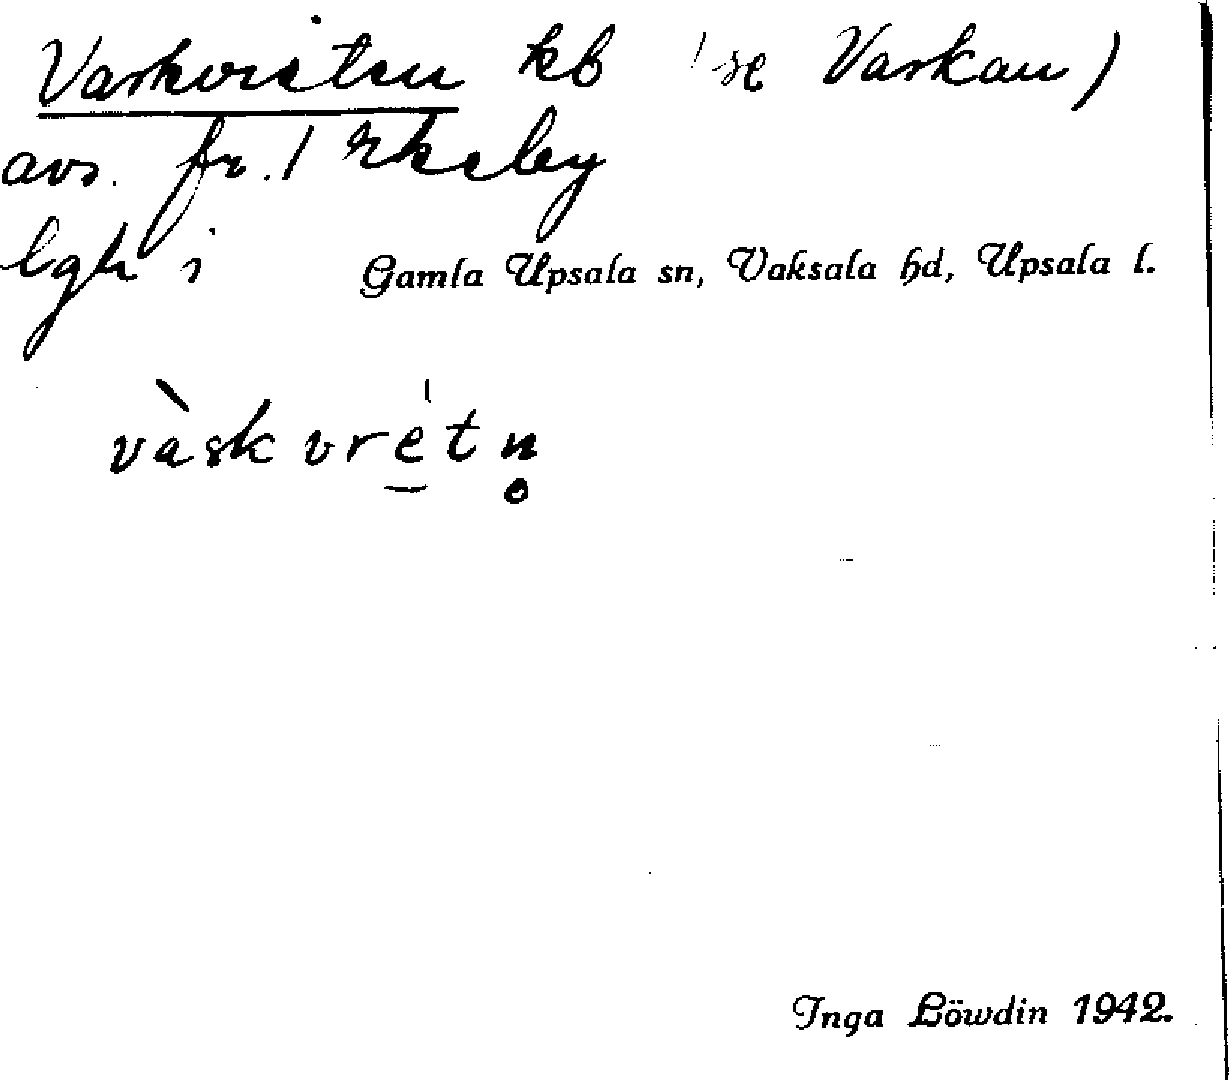 Varkvreten kb (se Varkan)
avs. fr. 1 Ekeby
lgh i Gamla Upsala sn, Vaksala hd, Upsala l.
vàskvretn̥
Inga Löwdin 1942.